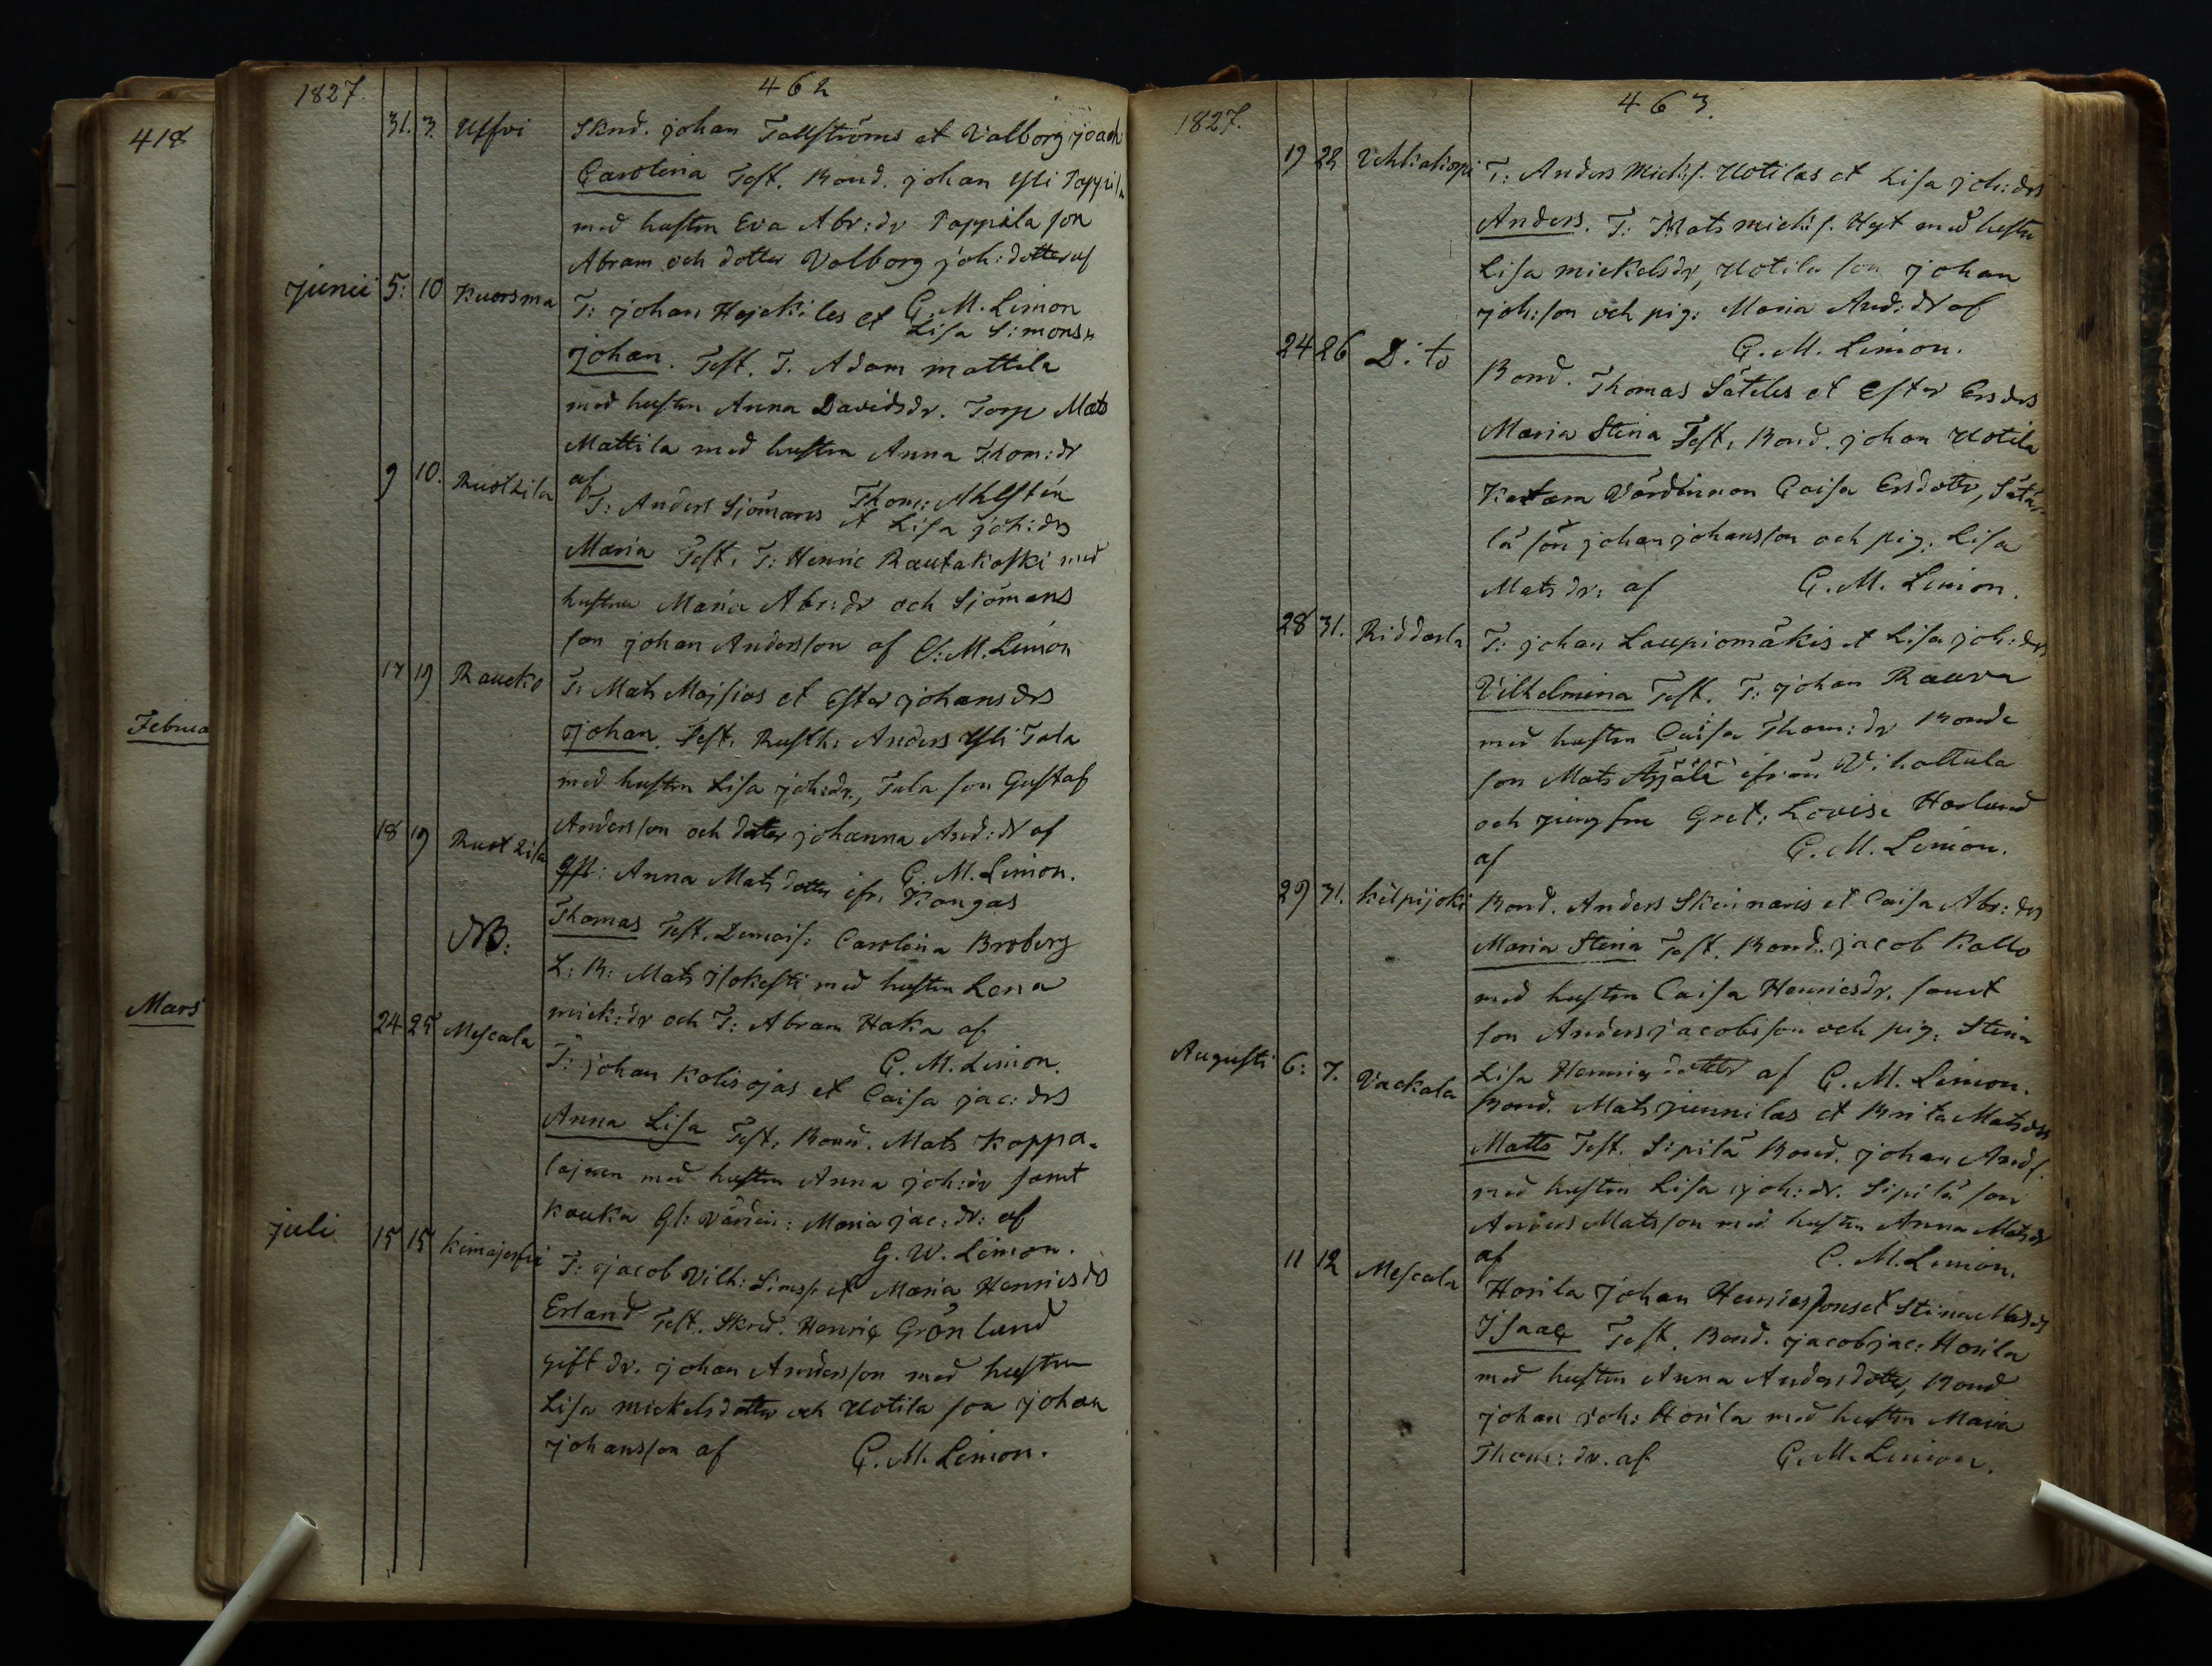 418
Februa
Mars
1827. 462
31. 3. Uffvi Skrd. johan Tallströms et Valborg joach:
Carolina Test. Bond. johan Yli Pappila
med hustru Eva Abr:dr Pappila son
Abram och dotter Valborg joh:dotter af
G. M. Limon
junii 5: 10 Kuorsma T: johan Hejckiles et Lisa Simonsdr
johan. Test. T. Adam Mattila
med hustru Anna Davidsdr. Torp Mats
Mattila med hustru Anna Thom:dr
af Thom: Ahlstén
9 10. Rustkila T: Anders Sjömans et Lisa joh:drs
Maria Test. T: Henric Rautakoski med
hustru Maria Abr:dr och Sjömans
son johan Andersson af G: M. Limon
17 19 Raucko T: Mats Majsias et Ester johansdrs
johan. Test. Rusth: Anders Yli Tala
med hustru Lisa joh:dr., Tala son Gustaf
Andersson och dotter johanna And:dr af
G. M. Limon.
18 19 Rustkila qfl: Anna Matsdotter ifr. Kangas
NB: Thomas Test. Demois: Carolina Broberg
L: B: Mats Isokesti med hustru Lena
mick:dr och T: Abram Haka af
G. M. Limon.
24 25 Mescala T: johan Kolisojas et Caisa jac:drs
Anna Lisa Test. Bond. Mats Koppa-
lajnen med hustru Anna joh:dr samt
Kauka Gl: Värdin: Maria jac:dr: af
G. W. Limon.
juli 15 15 Kimajerfvi T: jacob Vilh: Simss. et Maria Henricsdrs
Erland Test. Skrd. Henric Grönlund
gift dr. johan Andersson med hustru
Lisa mickelsdotter och Uotila son johan
johansson af G. M. Limon.
1827. 463.
19 22 Vehkakorpi T: Anders Mick:s. Uotilas et Lisa joh:drs
Anders. T: Mats mick:s. Hyt med hustru
Lisa mickelsdr, Uotila son johan
joh:son och pig: Maria And:dr af
G. M. Limon.
24 26 D:to Bond. Thomas Säteles et Ester Ersdrs
Maria Stina Test. Bond. johan Uotila
Kartam Värdinnan Caisa Ersdotter, Sätä-
lä son johan johansson och pig: Lisa
Matsdr: af G. M. Limon.
28 31. Riddarla T: johan Laupiomäkis et Lisa joh:drs
Vilhelmina Test. T: johan Rauva
med hustru Caisa Thom:dr Bonde
son Mats Äijälä ifrån Vihattula
och jungfru Gret: Lovisa Harlund
af G. M. Limon.
29 31. Kilpijoki Bond. Anders Skinnaris et Caisa Abr:drs
Maria Stina Test. Bond. jacob Kallo
med hustru Caisa Henricsdr. samt
son Anders jacobsson och pig: Stina
Lisa Henricsdotter af G. M. Limon.
Augusti 6: 7. Vackala Bond. Mats junnilas et Brita Matsdrs
Matts Test. Sipilä Bond. johan Ands.
med hustru Lisa joh:dr. Sipilä son
Anders Matsson med hustru Anna Matsdr
af G. M. Limon.
11 12 Mescala Horila johan Henricssons et Stina Matsdrs
Isaac Test. Bond. jacob jac: Horila
med hustru Anna Andersdotter, Bond
johan joh: Horila med hustru Maria
Thom:dr. af G. M. Limon.